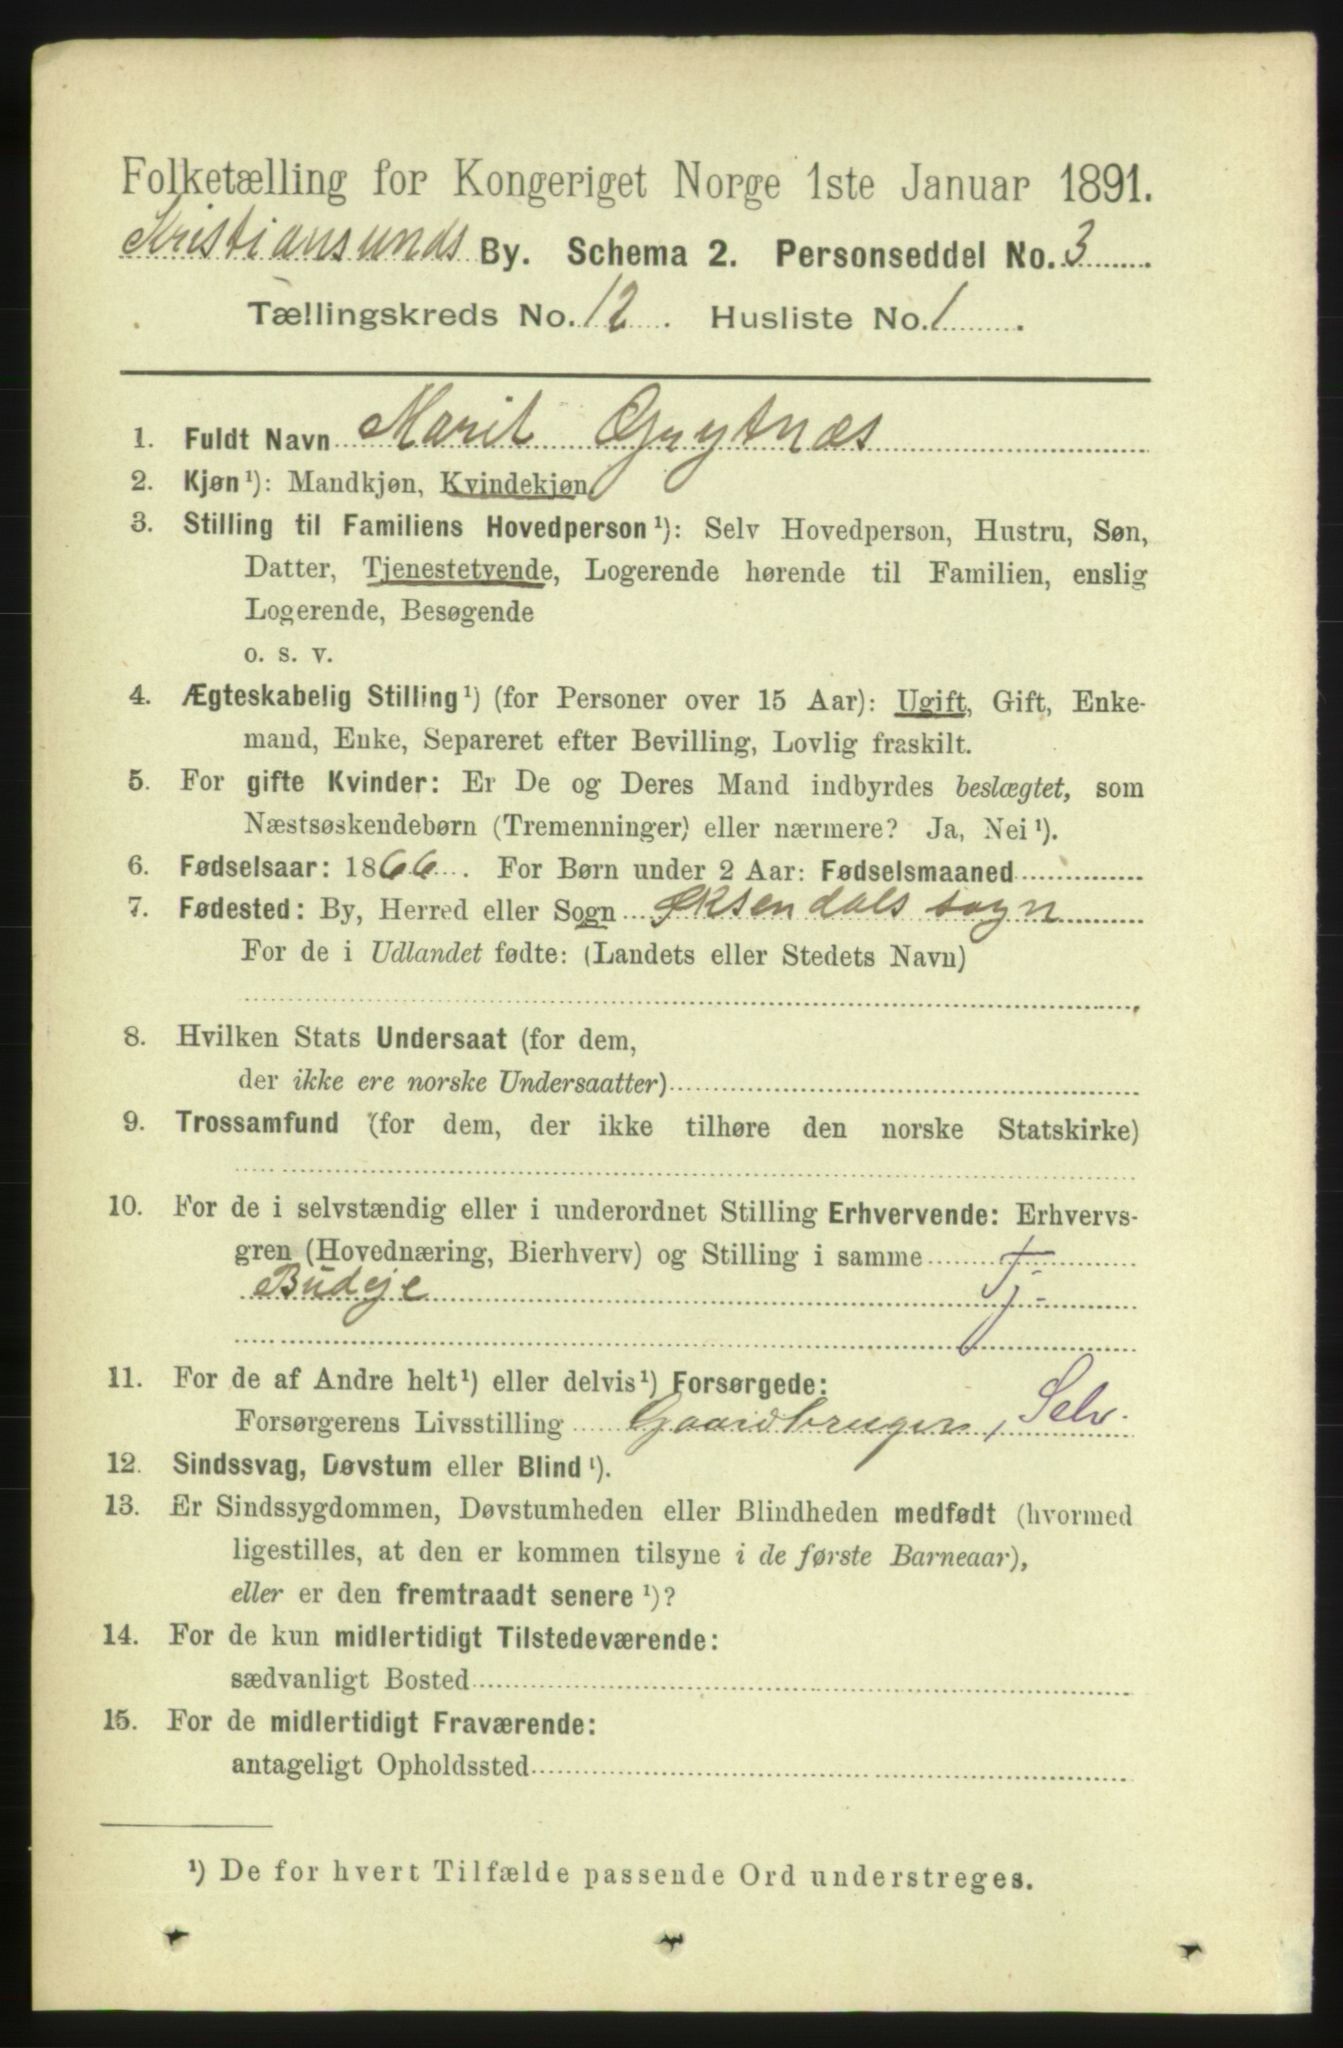 Folketælling for Kongeriget Norge 1ste Januar 1891.
Kristiansunds By. Schema 2. Personseddel No. 3
Tællingskreds No. 12. Husliste No. 1.
1. Fuldt Navn Marit Grytnæs
2. Kjøn ¹): Mandkjøn, Kvindekjøn
3. Stilling til Familiens Hovedperson ¹): Selv Hovedperson, Hustru, Søn,
Datter, Tjenestetyende, Logerende hørende til Familien, enslig
Logerende, Besøgende
o. s. v.
4. Ægteskabelig Stilling ¹) (for Personer over 15 Aar): Ugift, Gift, Enke-
mand, Enke, Separeret efter Bevilling, Lovlig fraskilt.
5. For gifte Kvinder: Er De og Deres Mand indbyrdes beslægtet, som
Næstsøskendebørn (Tremenninger) eller nærmere? Ja, Nei ¹).
6. Fødselsaar: 1866. For Børn under 2 Aar: Fødselsmaaned
7. Fødested: By, Herred eller Sogn Øksendals sogn
For de i Udlandet fødte: (Landets eller Stedets Navn)
8. Hvilken Stats Undersaat (for dem,
der ikke ere norske Undersaatter)
9. Trossamfund (for dem, der ikke tilhøre den norske Statskirke)
10. For de i selvstændig eller i underordnet Stilling Erhvervende: Erhvervs-
gren (Hovednæring, Bierhverv) og Stilling i samme
Budeje Tj-
11. For de af Andre helt ¹) eller delvis ¹) Forsørgede:
Forsørgerens Livsstilling Gaardbruger, Selv.
12. Sindssvag, Døvstum eller Blind ¹).
13. Er Sindssygdommen, Døvstumheden eller Blindheden medfødt (hvormed
ligestilles, at den er kommen tilsyne i de første Barneaar),
eller er den fremtraadt senere ¹)?
14. For de kun midlertidigt Tilstedeværende:
sædvanligt Bosted
15. For de midlertidigt Fraværende:
antageligt Opholdssted
¹) De for hvert Tilfælde passende Ord understreges.